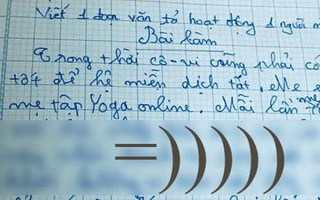 Viết 1 đoạn văn tả hoạt động 1 người m
Bài làm
Trong thời cô-vi cũng phải có
tốt để hệ miễn dịch tốt. Mẹ
mẹ tập Yoga online. Mỗi lần mẹ
=)))))